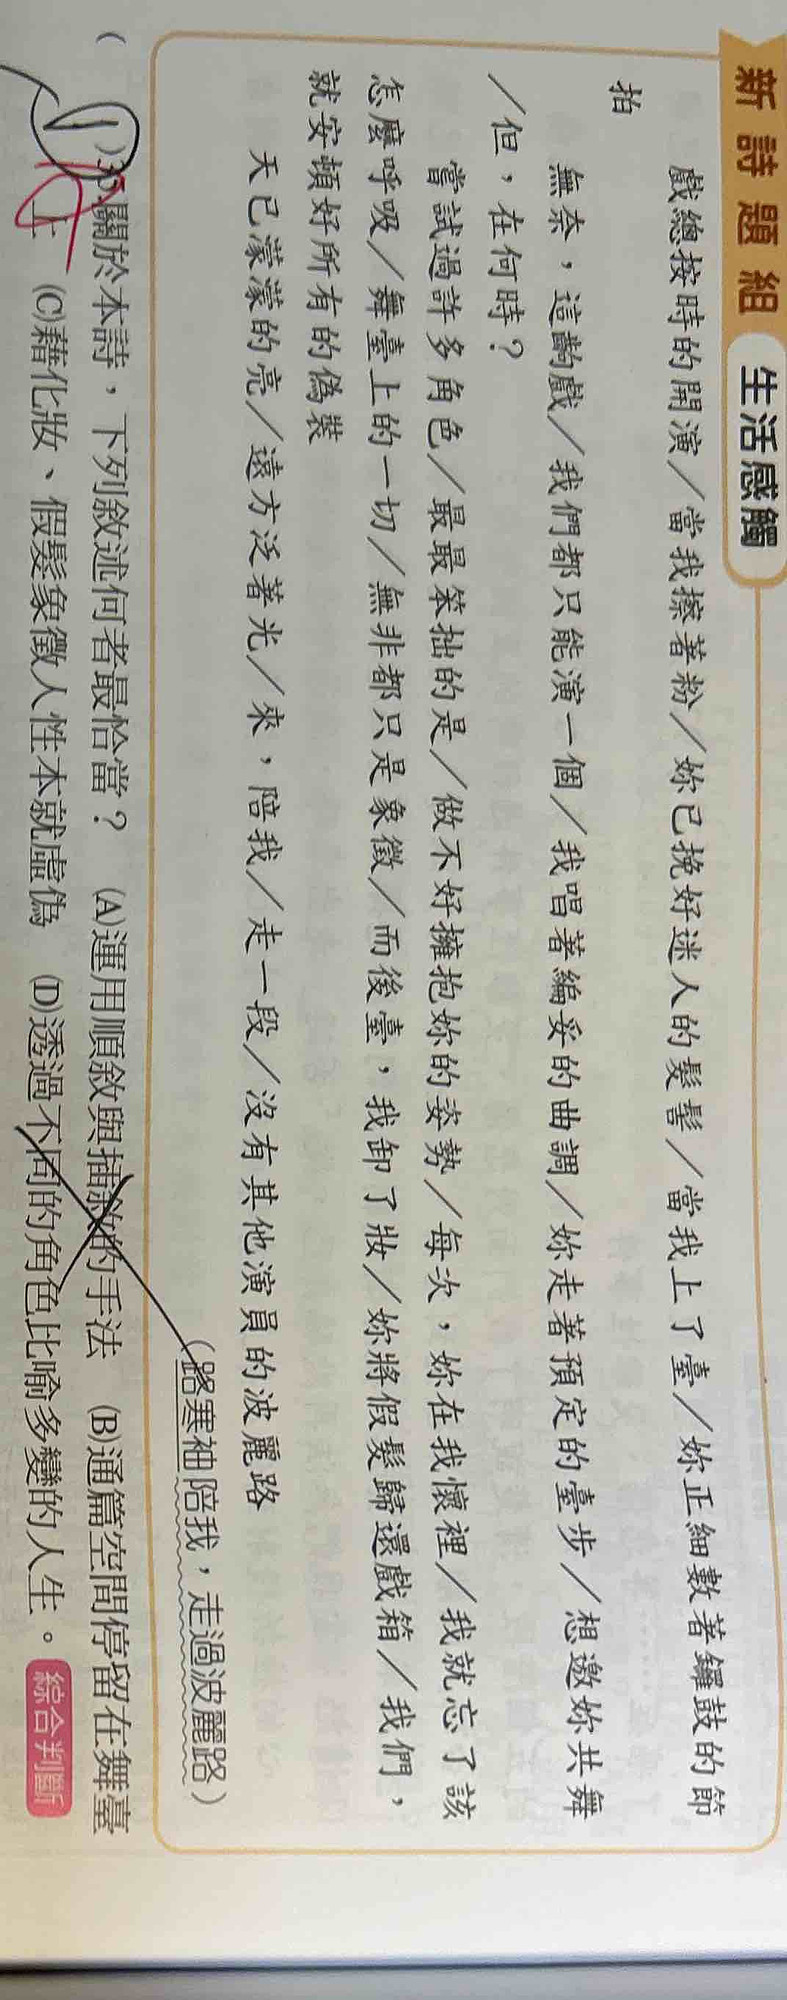 新詩題組 生活感觸
戲總按時的開演／當我擦著粉／妳已挽好迷人的髮髻／當我上了臺／妳正細數著鑼鼓的節
拍
無奈，這齣戲／我們都只能演一個／我唱著編妥的曲調／妳走著預定的臺步／想邀妳共舞
／但，在何時？
嘗試過許多角色／最最笨拙的是／做不好擁抱妳的姿勢／每次，妳在我懷裡／我就忘了該
怎麼呼吸／舞臺上的一切／無非都只是象徵／而後臺，我卸了妝／妳將假髮歸還戲箱／我們，
就安頓好所有的偽裝
天已濛濛的亮／遠方泛著光／來，陪我／走一段／沒有其他演員的波麗路
（路寒袖陪我，走過波麗路）
關於本詩，下列敘述何者最恰當？ (A)運用順敘與插敘的手法 (B)通篇空間停留在舞臺
上 (C)藉化妝、假髮象徵人性本就虛偽 (D)透過不同的角色比喻多變的人生。 綜合判斷